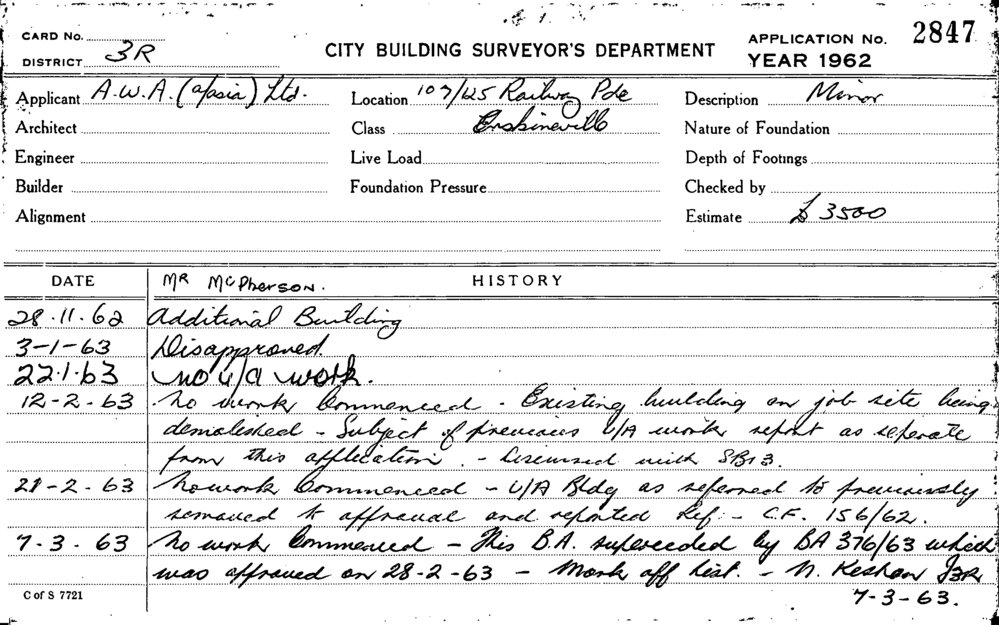 CARD No.
DISTRICT 3R
CITY BUILDING SURVEYOR'S DEPARTMENT
APPLICATION No. 2847
YEAR 1962
Applicant A.W.A. (a/asia) Ltd. Location 107/125 Railway Pde Description Minor
Architect Class Erskineville Nature of Foundation
Engineer Live Load Depth of Footings
Builder Foundation Pressure Checked by
Alignment Estimate £ 3500
DATE MR McPherson. HISTORY
28.11.62 Additional Building
3-1-63 Disapproved.
22.1.63 no u/a work.
12-2-63 No work Commenced - Existing building on job site being
demolished - Subject of previous U/A work report as seperate
from this application. - Discussed with SB13.
21-2-63 No work Commenced - U/A Bldg as referred to previously
removed to approval and reported Ref:- C.F. 156/62.
7-3-63 No work Commenced - This B.A. superseded by BA 376/63 which
was approved on 28-2-63 - Mark off list. - N. 3R
C of S 7721 7-3-63.